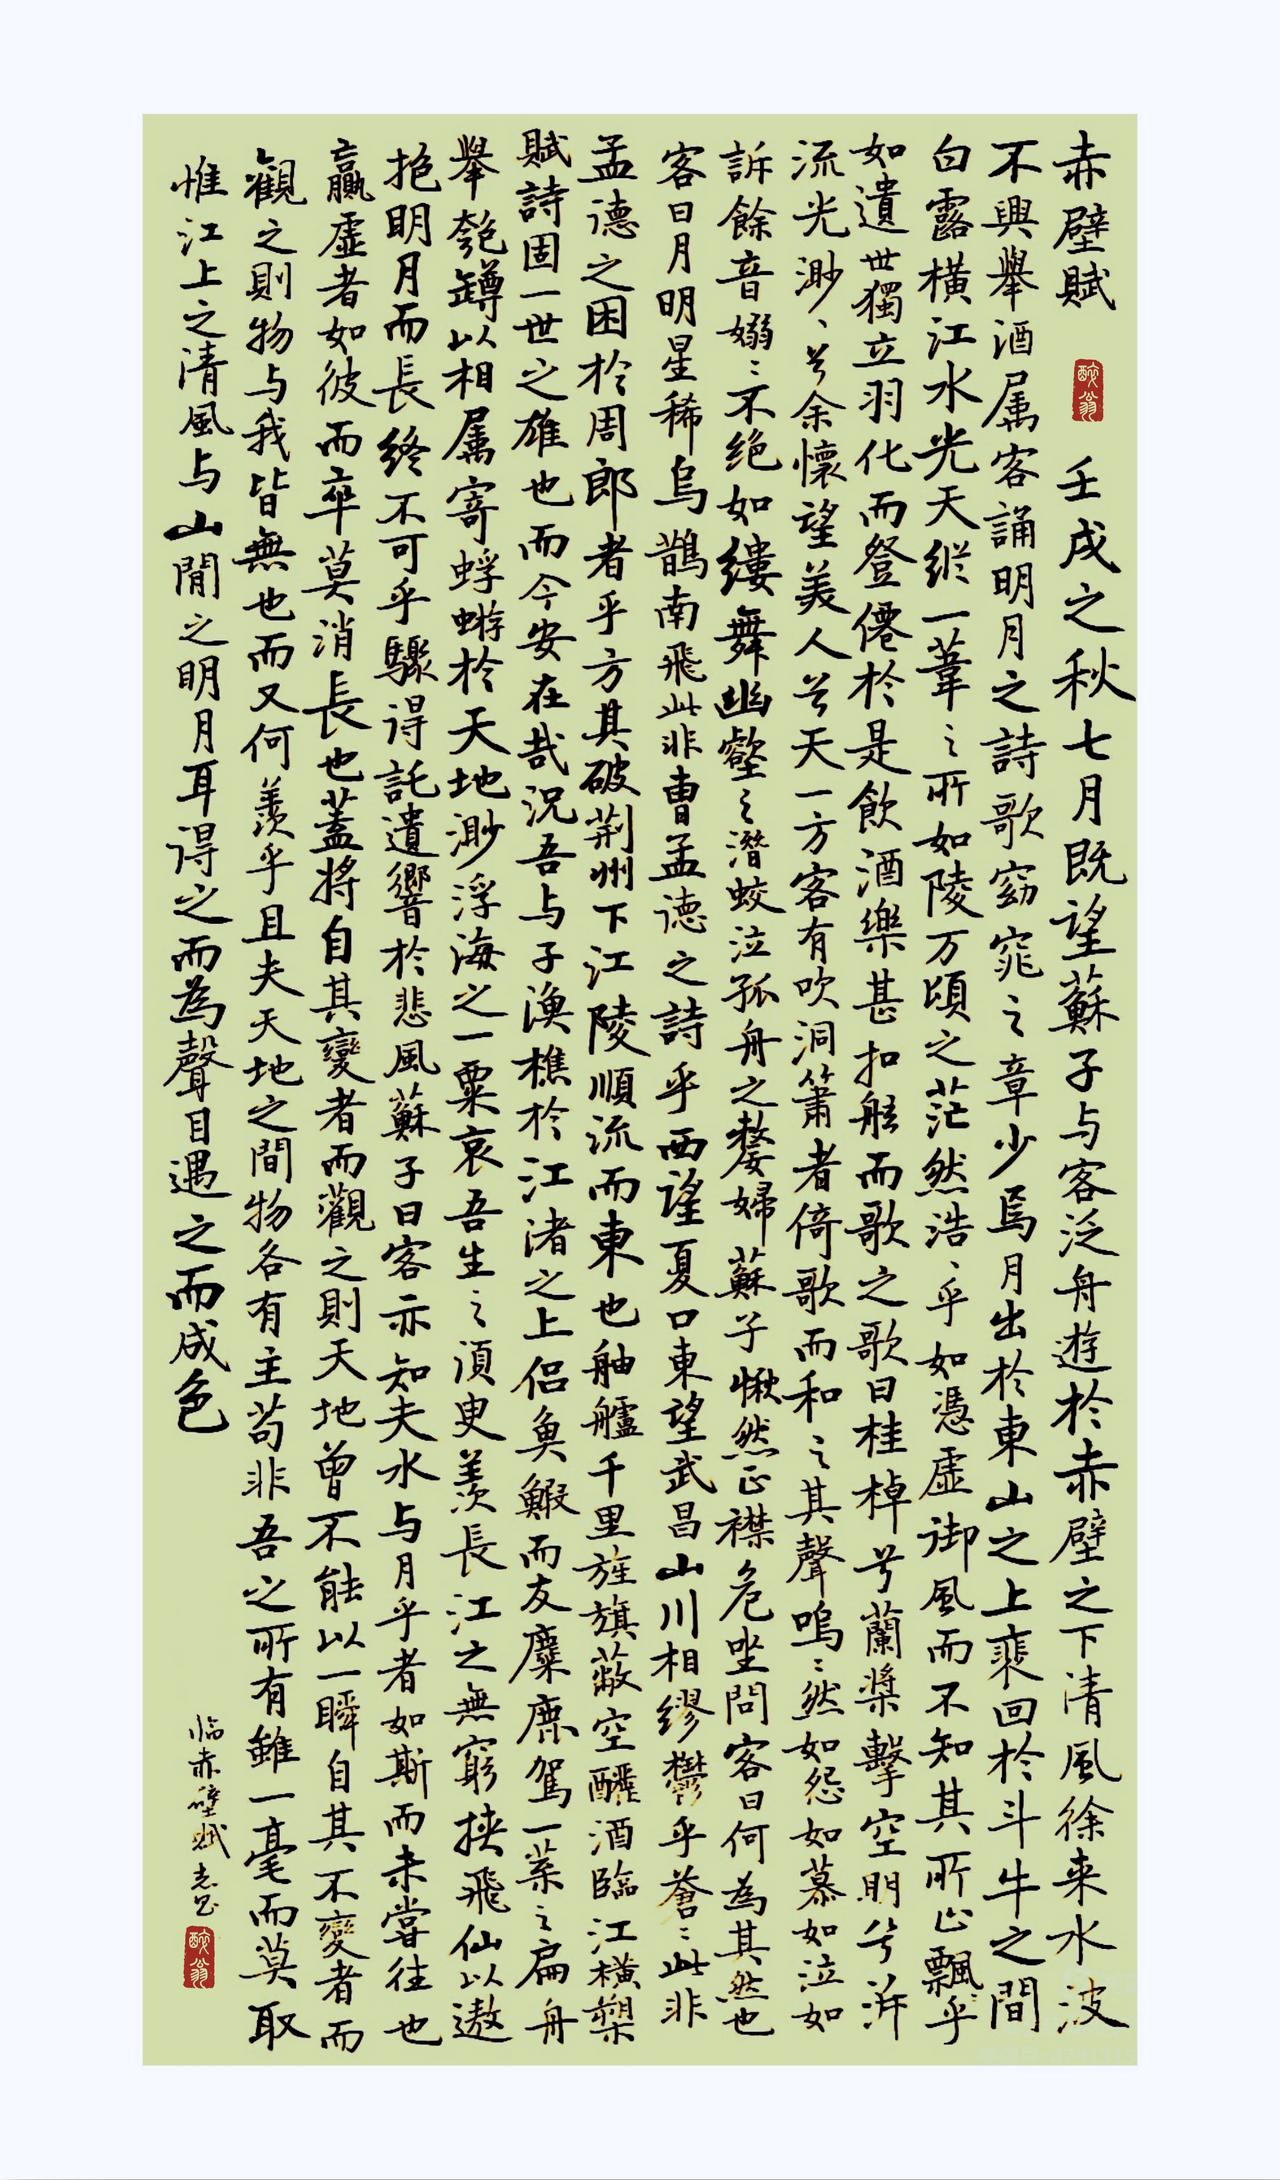 赤壁賦 醉翁 壬戌之秋七月既望蘇子与客泛舟遊於赤壁之下清風徐来水波
不興舉酒属客誦明月之詩歌窈窕之章少焉月出於東山之上裴回於斗牛之間
白露横江水光天縱一葦之所如陵万頃之茫然浩、乎如憑虚御風而不知其所止飄乎
如遺世獨立羽化而登僊於是飲酒樂甚扣舷而歌之歌曰桂棹兮蘭槳擊空明兮泝
流光渺、兮余懷望美人兮天一方客有吹洞簫者倚歌而和之其聲嗚〻然如怨如慕如泣如
訴餘音嫋〻不絶如縷舞幽壑之潛蛟泣孤舟之嫠婦蘇子愀然正襟危坐問客曰何為其然也
客曰月明星稀烏鵲南飛此非曹孟德之詩乎西望夏口東望武昌山川相繆鬱乎蒼〻此非
孟德之困於周郎者乎方其破荆州下江陵順流而東也舳艫千里旌旗蔽空釃酒臨江横槊
賦詩固一世之雄也而今安在哉況吾与子漁樵於江渚之上侣魚鰕而友麋鹿駕一葉之扁舟
舉匏罇以相属寄蜉蝣於天地渺浮海之一粟哀吾生之須臾羨長江之無窮挟飛仙以遨
抱明月而長終不可乎驟得託遺響於悲風蘇子曰客亦知夫水与月乎者如斯而未嘗往也
贏虚者如彼而卒莫消長也蓋將自其變者而觀之則天地曾不能以一瞬自其不變者而
觀之則物与我皆無也而又何羨乎且夫天地之間物各有主苟非吾之所有雖一毫而莫取
惟江上之清風与山間之明月耳得之而為聲目遇之而成色
临赤壁赋 志 醉翁